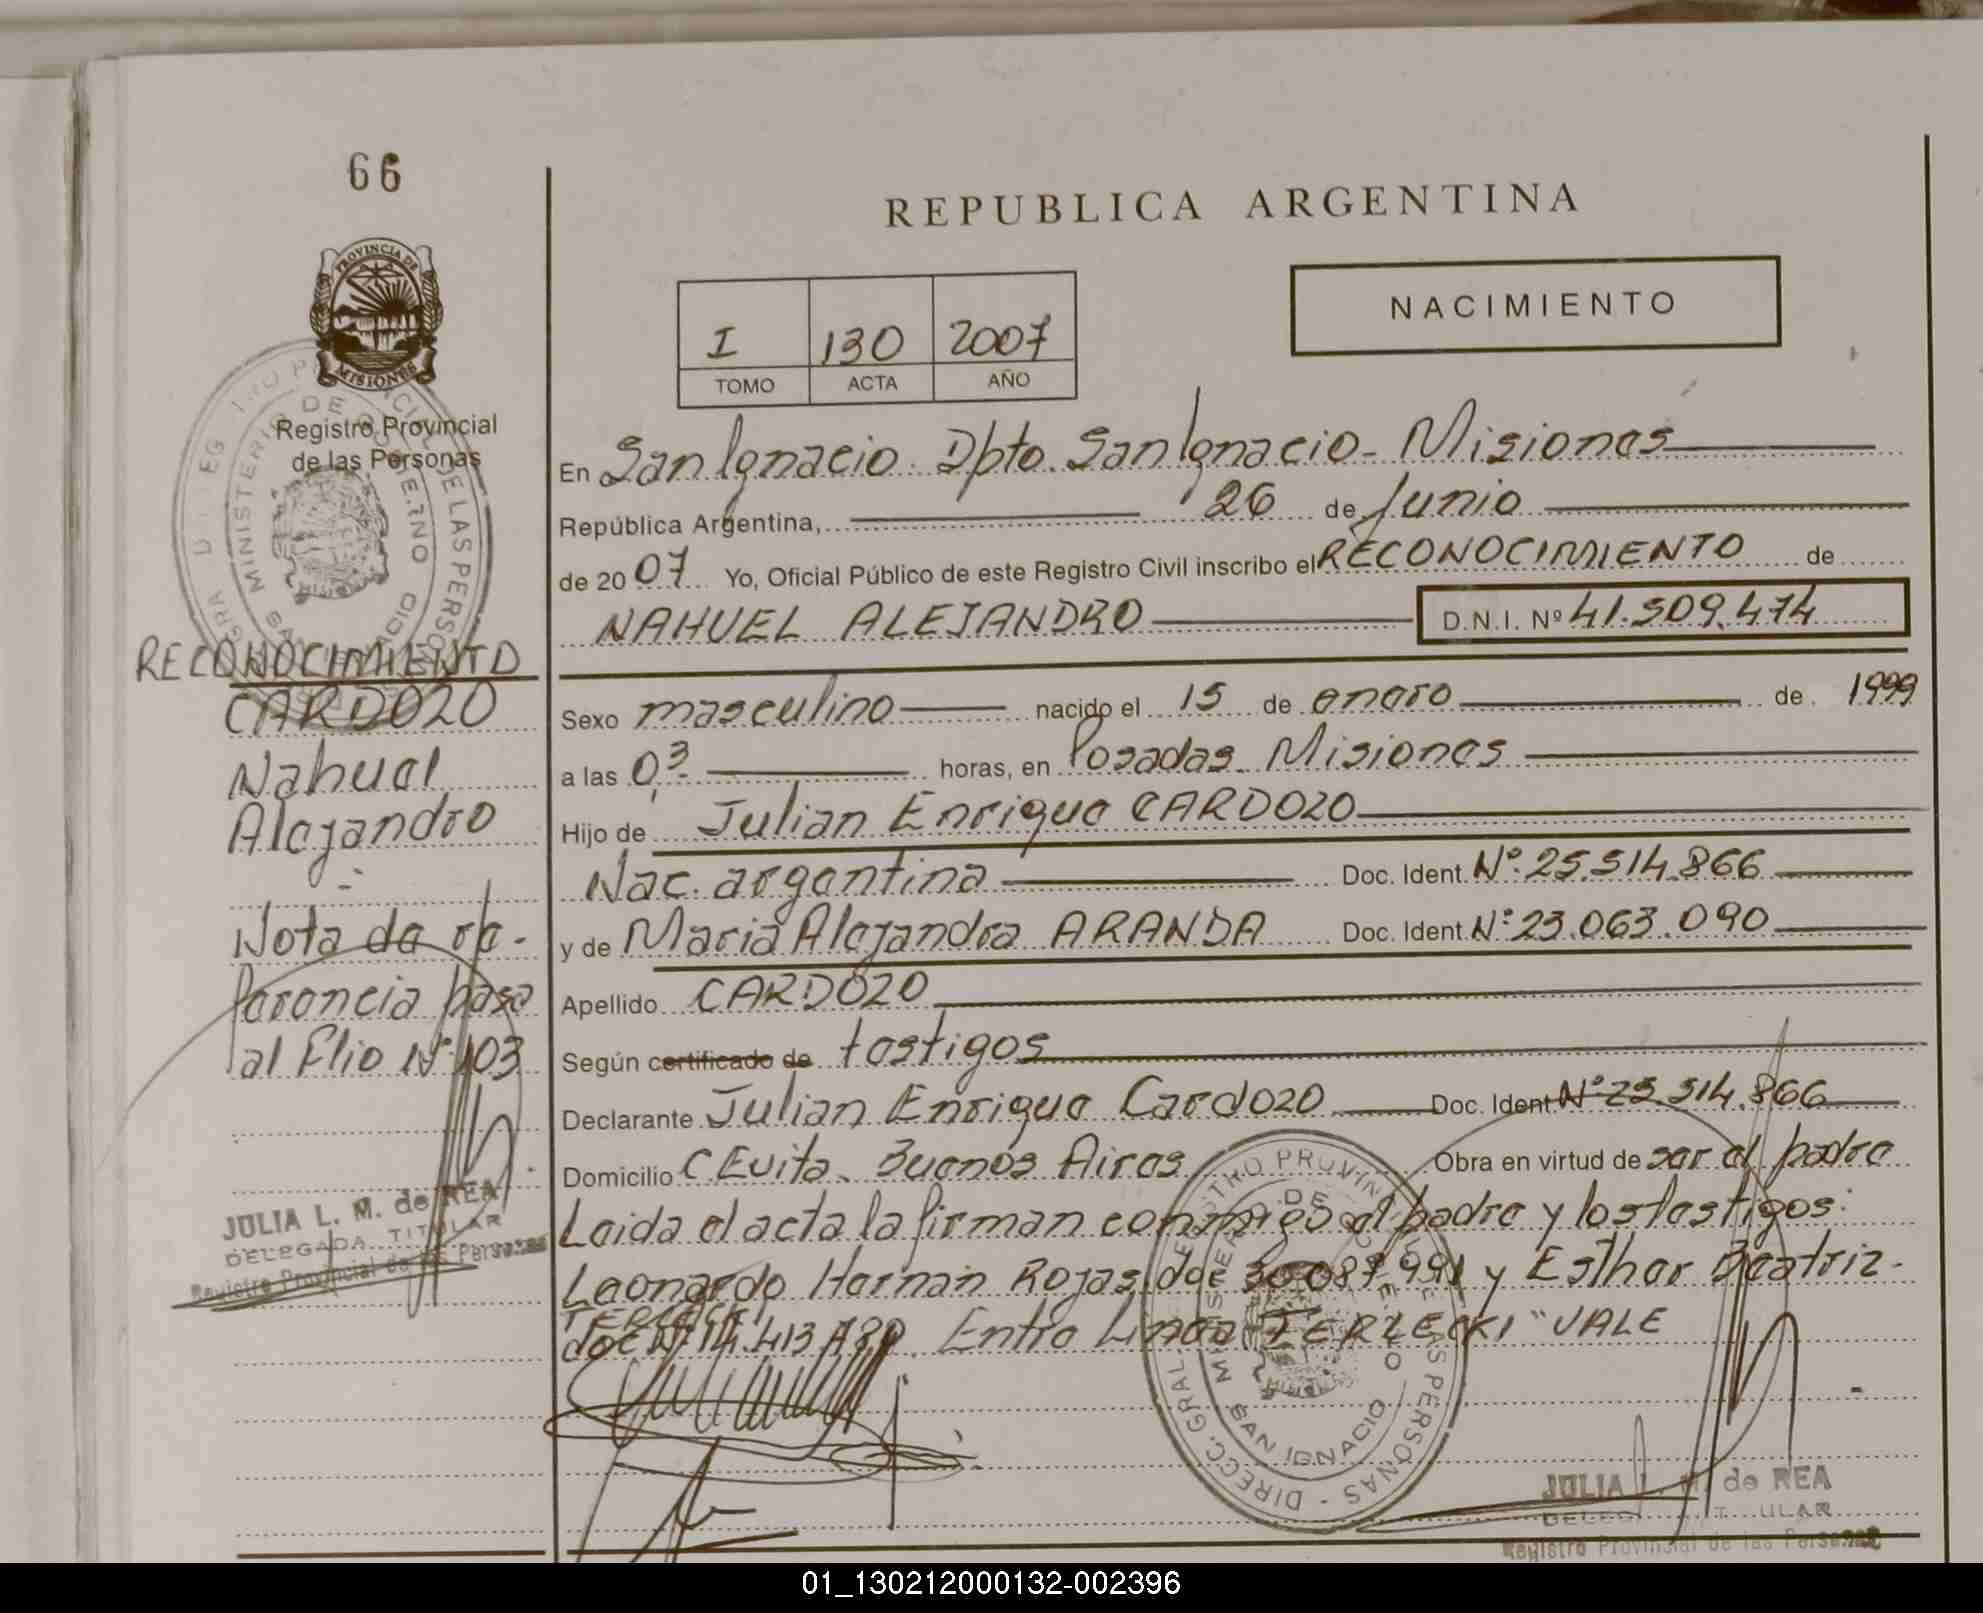 66
REPUBLICA ARGENTINA
PROVINCIA DE
MISIONES
Registro Provincial
de las Personas
I 130 2007
TOMO ACTA AÑO
NACIMIENTO
En San Ignacio. Dpto. San Ignacio - Misiones
República Argentina, 26 de Junio
de 2007 Yo, Oficial Público de este Registro Civil inscribo el RECONOCIMIENTO de
NAHUEL ALEJANDRO D.N.I. Nº 41.509.474
Sexo masculino nacido el 15 de enero de 1999
a las 03 horas, en Posadas Misiones
Hijo de Julian Enrique CARDOZO
Nac. argentina Doc. Ident. Nº 25.514.866
y de Maria Alejandra ARANDA Doc. Ident. Nº 23.063.090
Apellido CARDOZO
Según certificado de testigos
Declarante Julian Enrique Cardozo Doc. Ident. Nº 25.514.866
Domicilio C. Evita. Buenos Aires Obra en virtud de ser el padre
Leida el acta la firman conmigo el padre y los testigos:
Leonardo Hernan Rojas doc 30087991 y Esther Beatriz
TERLECKI
doc Nº 14.413.789. Entre Lineas "TERLECKI" VALE
RECONOCIMIENTO
CARDOZO
Nahuel
Alejandro
Nota de re-
ferencia pasa
al flio Nº 103
JULIA L. M. de REA
DELEGADA TITULAR
Registro Provincial de las Personas
REGISTRO PROVINCIAL DE LAS PERSONAS - DIRECC. GRAL
MINISTERIO DE GOBIERNO
SAN IGNACIO
JULIA L. M. de REA
DELEGADA TITULAR
Registro Provincial de las Personas
01_130212000132-002396